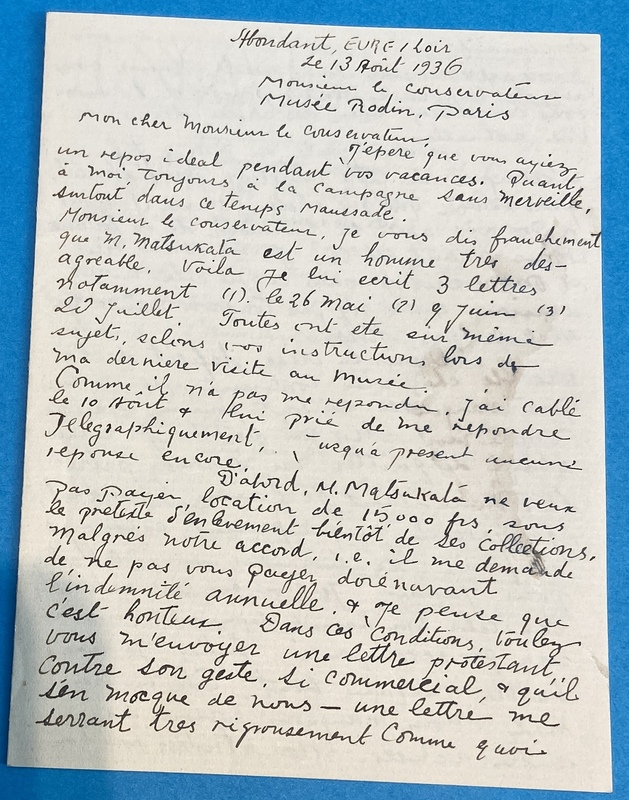 Abondant, EURE / Loir
Le 13 Août 1936
Monsieur le Conservateur
Musée Rodin, Paris
Mon cher Monsieur le Conservateur,
J'epere que vous ayiez
un repos ideal pendant vos vacances. Quant
à moi, toujours à la campagne sans merveille,
surtout dans ce temps maussade.
Monsieur le conservateur, je vous dis franchement
que M. Matsukata est un homme tres des-
agreable. Voila je lui ecrit 3 lettres
notamment (1). le 26 Mai (2) 9 Juin (3)
20 Juillet Toutes ont ete sur même
sujet, selons vos instructions lors de
ma derniere visite au Musée.
Comme il n'a pas me repondu, j'ai cablé
le 10 Août & lui prié de me repondre
Telegraphiquement, Jusqu'a present aucune
reponse encore.
D'abord, M. Matsukata ne veux
pas payer location de 15,000 frs, sous
le pretexte d'enlevement bientôt de ses collections,
Malgrés notre accord, i.e. il me demande
de ne pas vous payer dorénavant
l'indemnité annuelle, & je pense que
c'est honteux. Dans ces Conditions, voulez
vous m'envoyer une lettre protestant,
contre son geste, si commercial, & qu'il
s'en mocque de nous — une lettre me
serrant tres rigrousement comme quoi